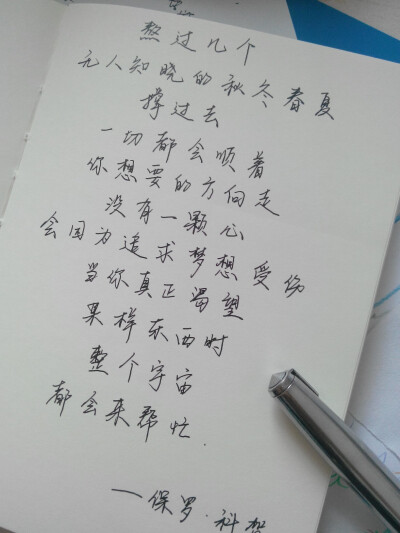 熬过几个
无人知晓的秋冬春夏
撑过去
一切都会顺着
你想要的方向走
没有一颗心
会因为追求梦想受伤
当你真正渴望
某样东西时
整个宇宙
都会来帮忙.
一保罗.科